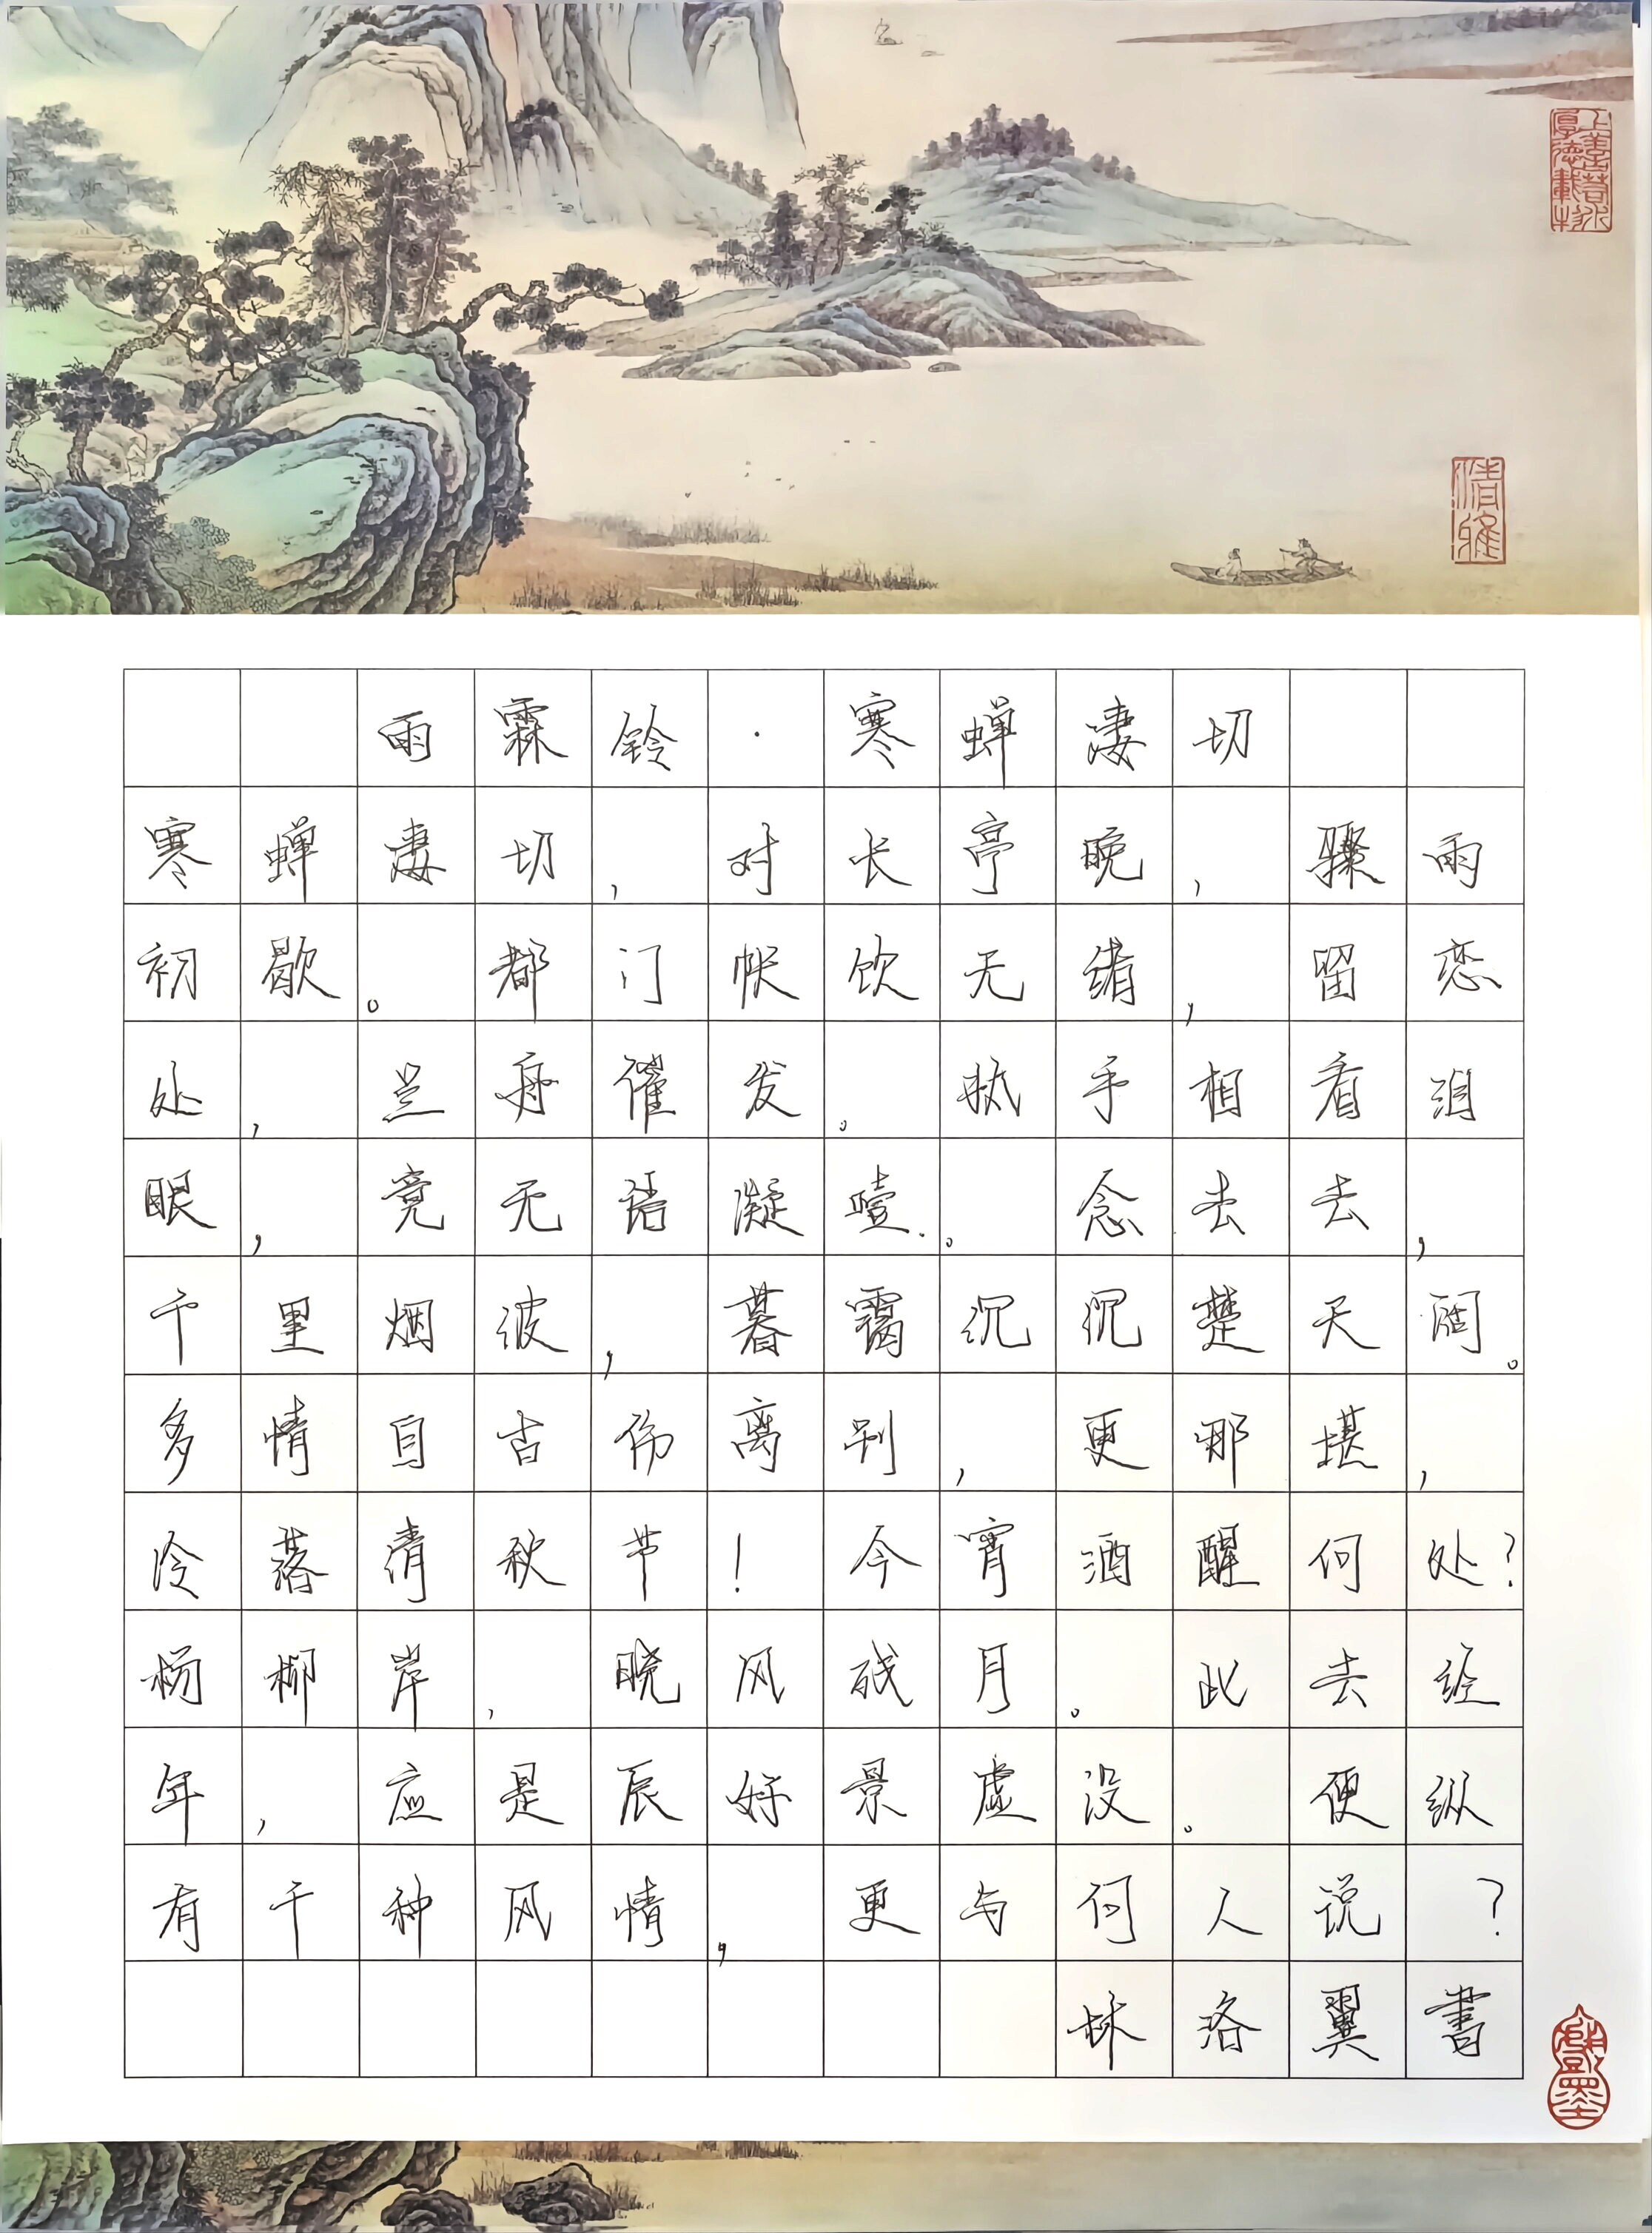 上善若水
厚德載物
清雅
雨霖铃·寒蝉凄切
寒蝉凄切，对长亭晚，骤雨
初歇。都门帐饮无绪，留恋
处，兰舟催发。执手相看泪
眼，竟无语凝噎。念去去，
千里烟波，暮霭沉沉楚天阔。
多情自古伤离别，更那堪，
冷落清秋节！今宵酒醒何处？
杨柳岸，晓风残月。此去经
年，应是辰好景虚设。便纵
有千种风情，更与何人说？
林洛翼書